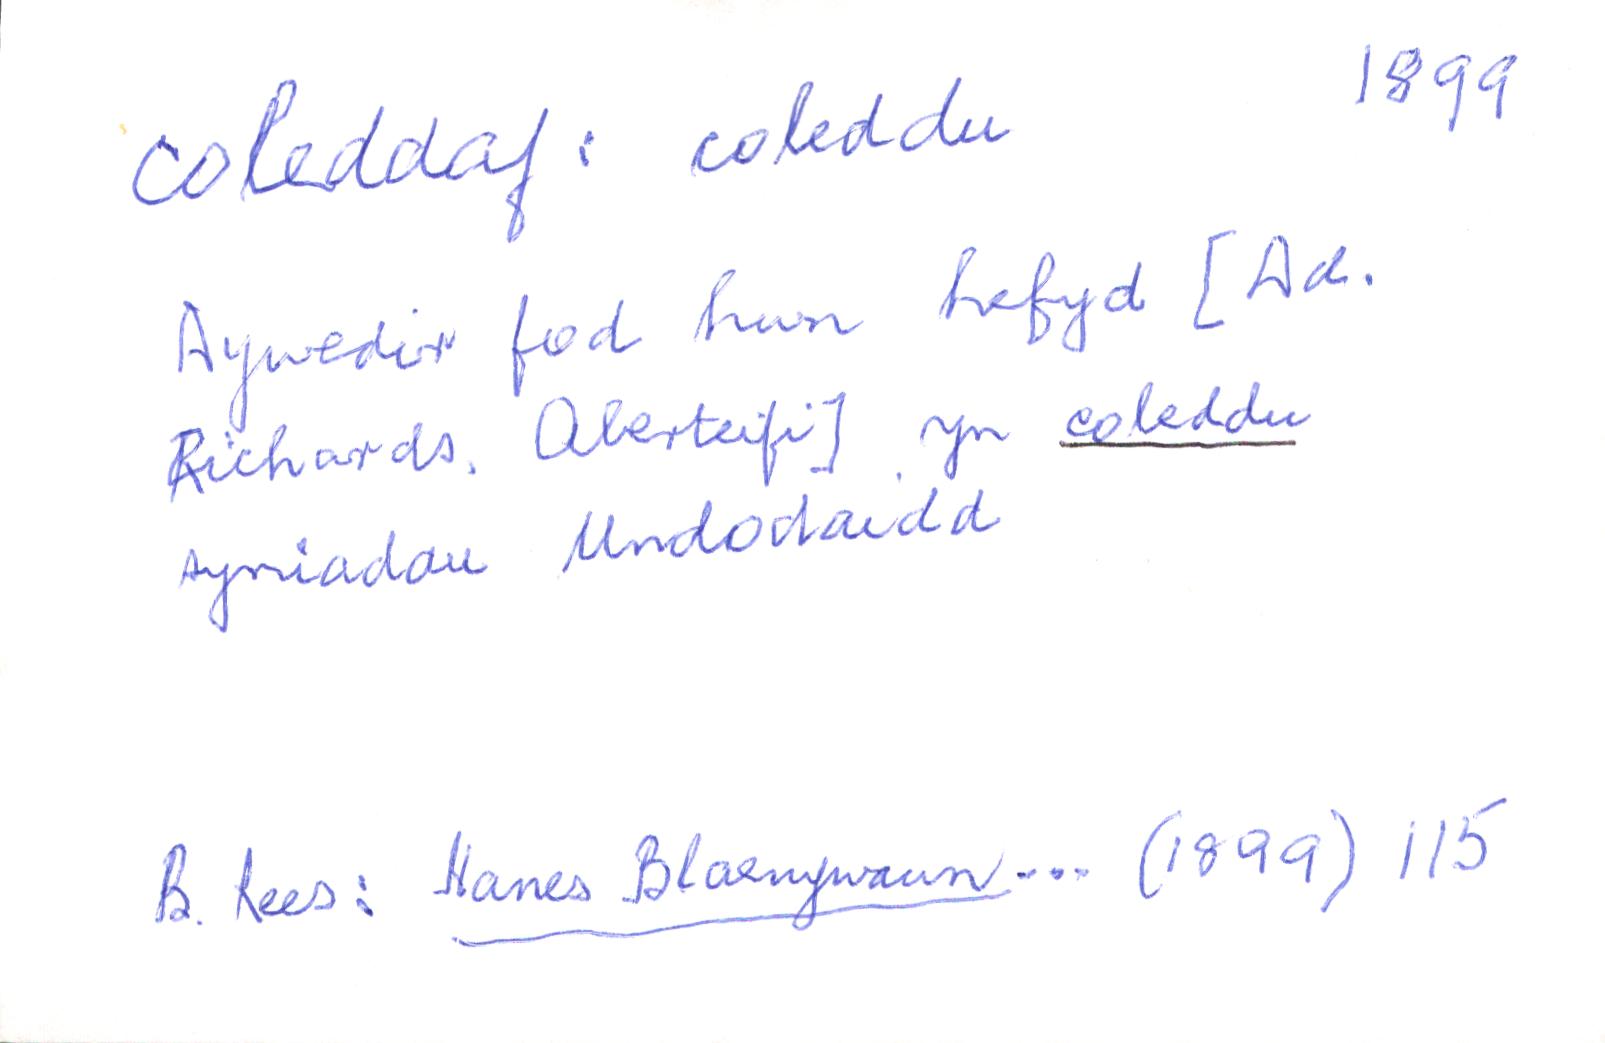 coleddaf: coleddu 1899
Dywedir fod hwn hefyd [Dd.
Richards, Aberteifi] yn coleddu
syniadau Undodaidd
B. Rees: Hanes Blaenywaun... (1899) 115